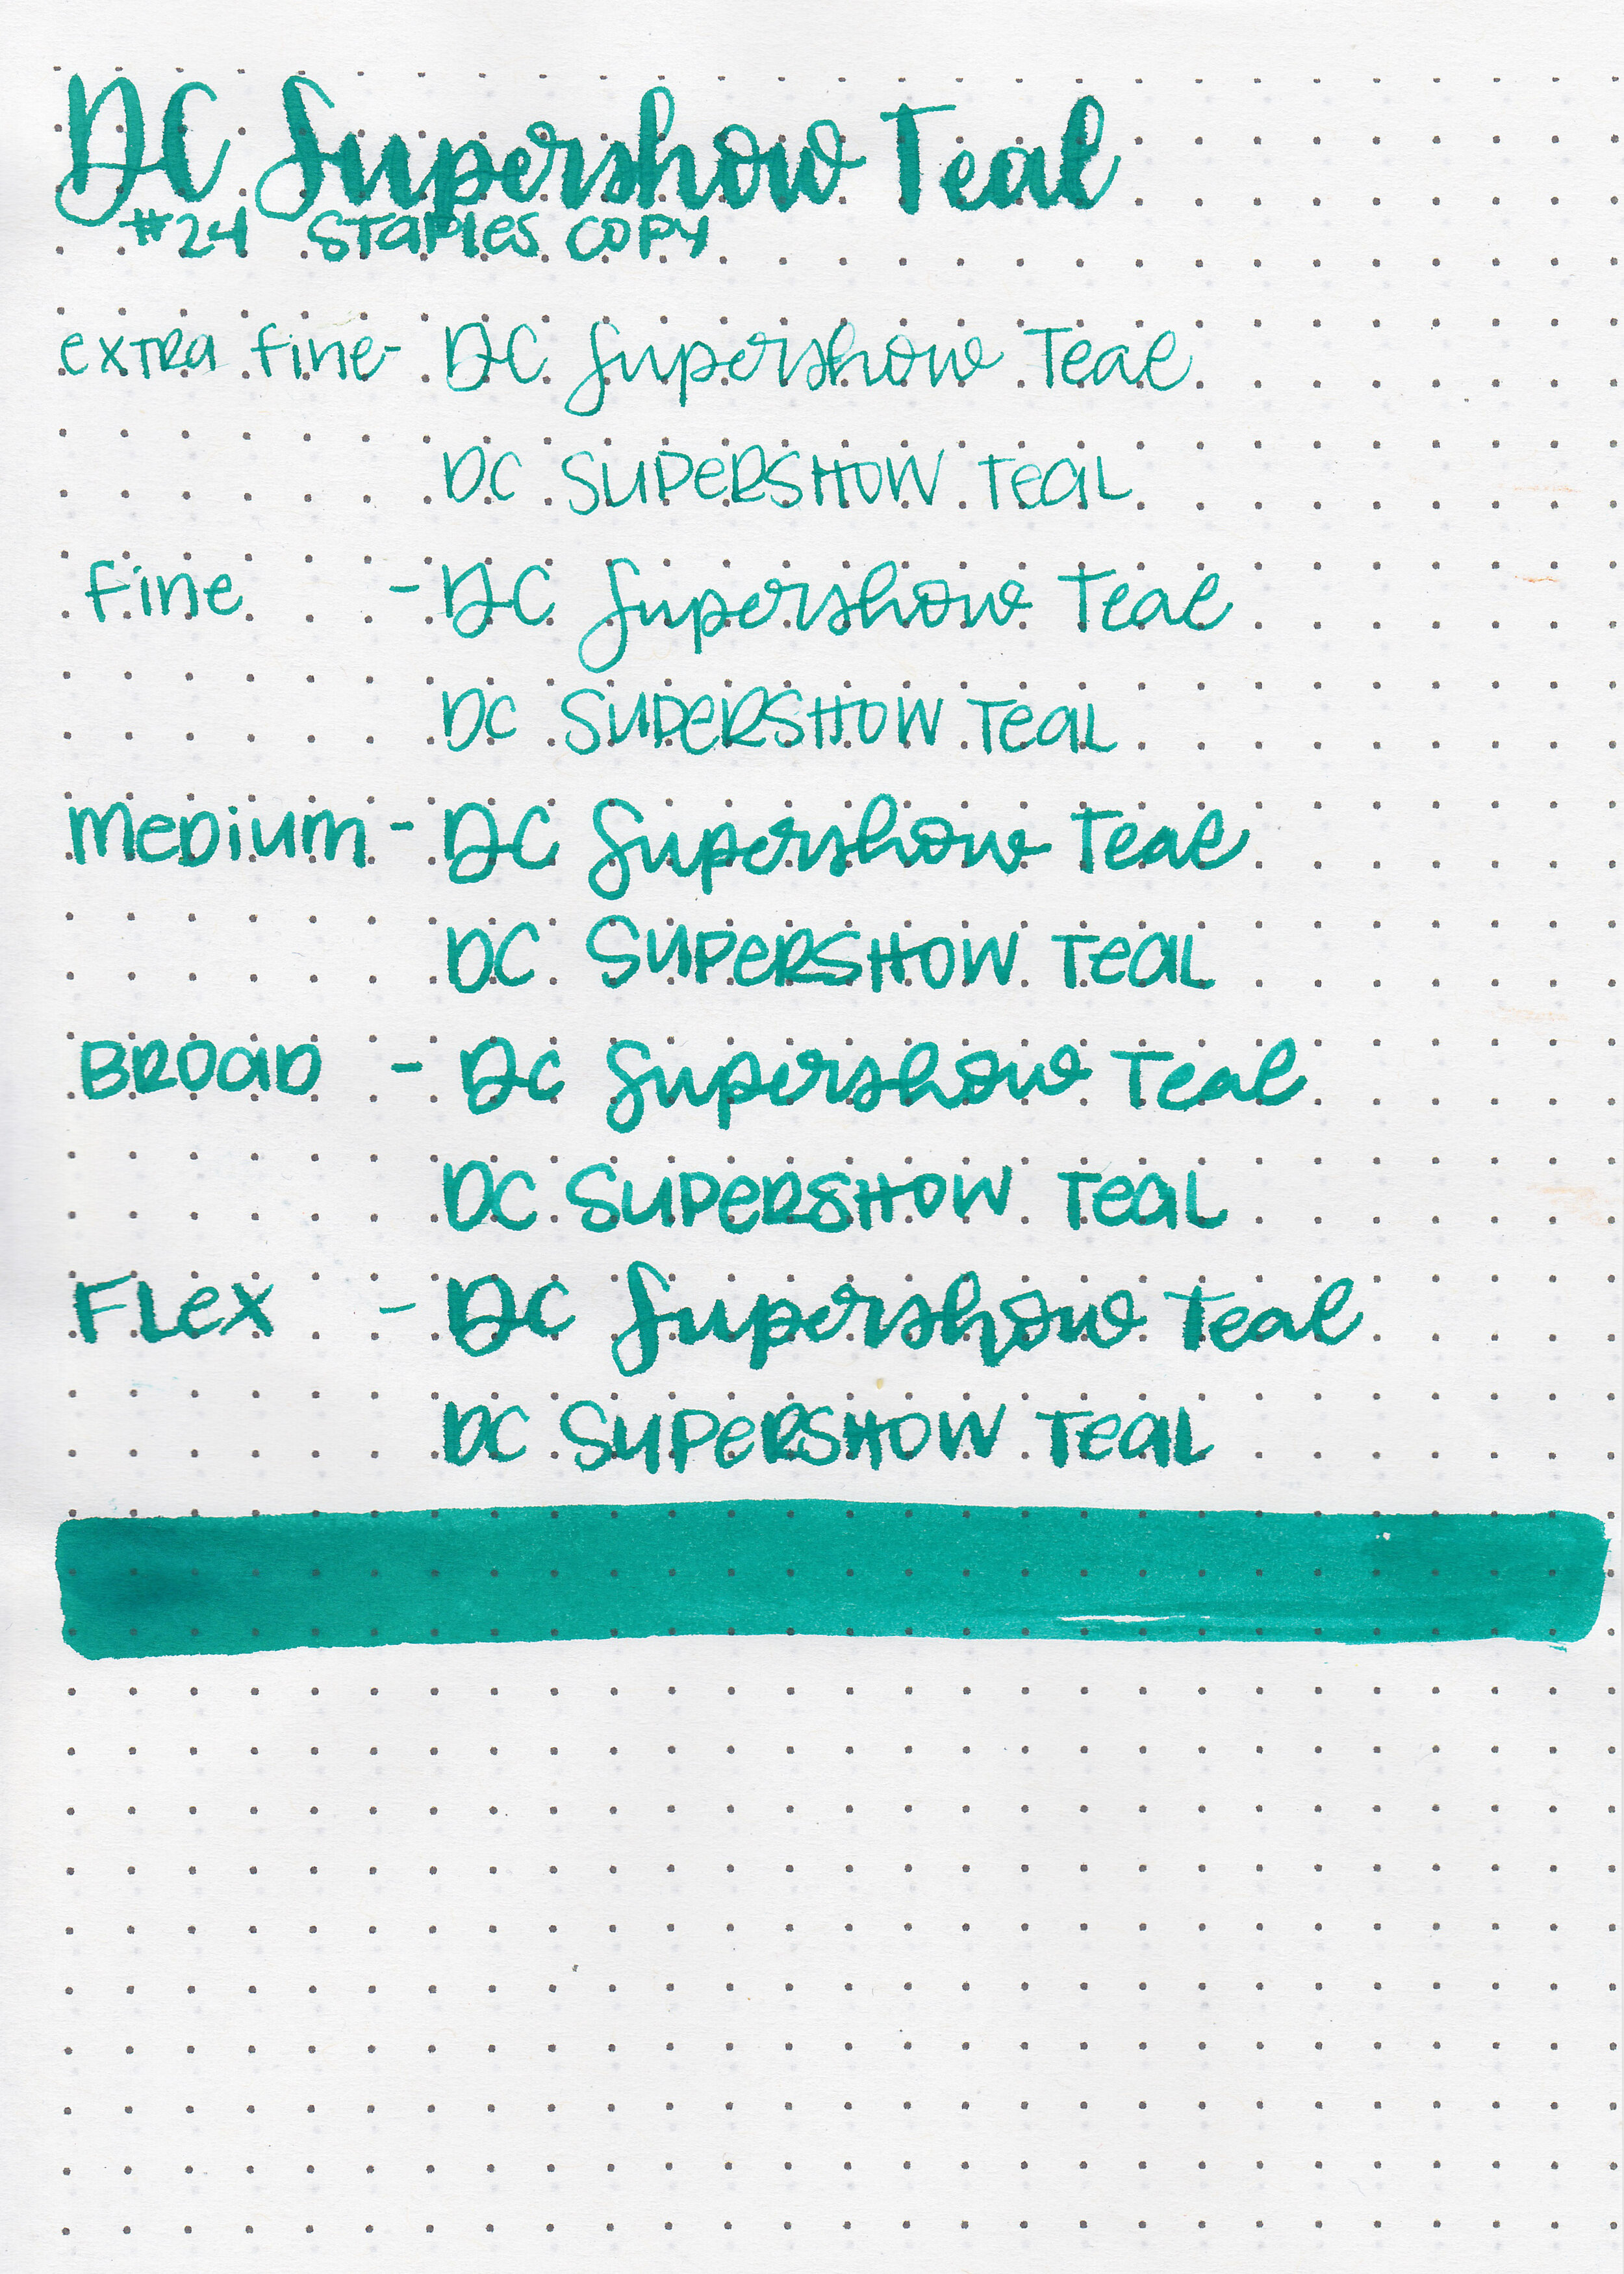 DC Supershow Teal
#24 Staples Copy
extra fine- DC Supershow Teal
DC SUPERSHOW TEAL
fine - DC Supershow Teal
DC SUPERSHOW TEAL
Medium - DC Supershow Teal
DC SUPERSHOW TEAL
Broad - DC Supershow Teal
DC SUPERSHOW TEAL
Flex - DC Supershow Teal
DC SUPERSHOW TEAL